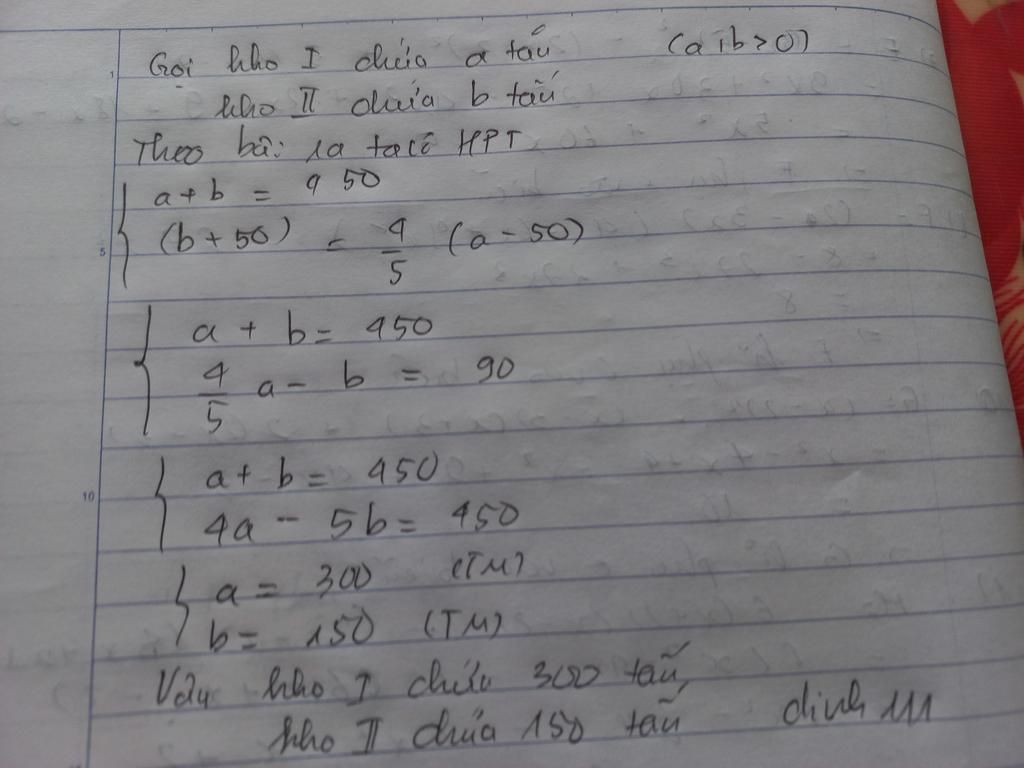 Gọi kho I chứa a tấn (a;b>0)
kho II chứa b tấn
Theo bài ra ta có HPT
a+b = 450
(b+50) = 4/5 (a-50)
a + b = 450
4/5 a - b = 90
a+ b = 450
4a - 5b = 450
a = 300 (TM)
b = 150 (TM)
Vậy kho I chứa 300 tấn
kho II chứa 150 tấn